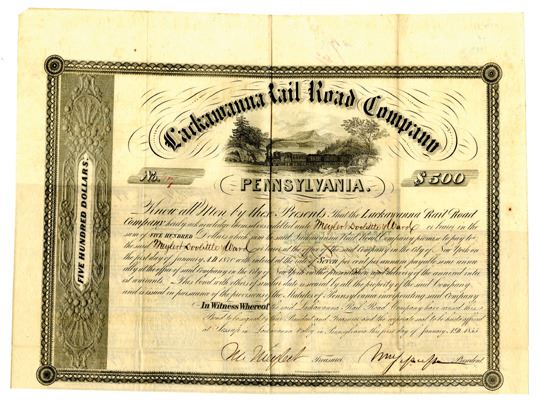 Lackawanna Rail Road Company
No. 7
$500
PENNSYLVANIA.
FIVE HUNDRED DOLLARS.
Know all Men by these Presents That the Lackawanna Rail Road
Company hereby acknowledge themselves indebted unto Meylert Doolittle Ward or bearer in the
sum of FIVE HUNDRED Dollars which sum the said Lackawanna Rail Road Company promise to pay to
the said Meylert Doolittle Ward or bearer at the office of the said company in the city of New York on
the first day of January, A.D. with interest at the rate of Seven per cent per annum payable semi annu-
ally at the office of said company in the city of New York on the presentation and delivery of the annexed inter-
est warrants. This Bond with others of similar date is secured by all the property of the said Company
and is issued in pursuance of the provisions of the Statutes of Pennsylvania incorporating said Company
In Witness Whereof the said Lackawanna Rail Road Company have caused this
Bond to be signed by their President and Treasurer and the corporate seal to be hereto affixed
at in Lackawanna Valley in Pennsylvania the first day of January A.D. 1855
M. Meylert Treasurer President